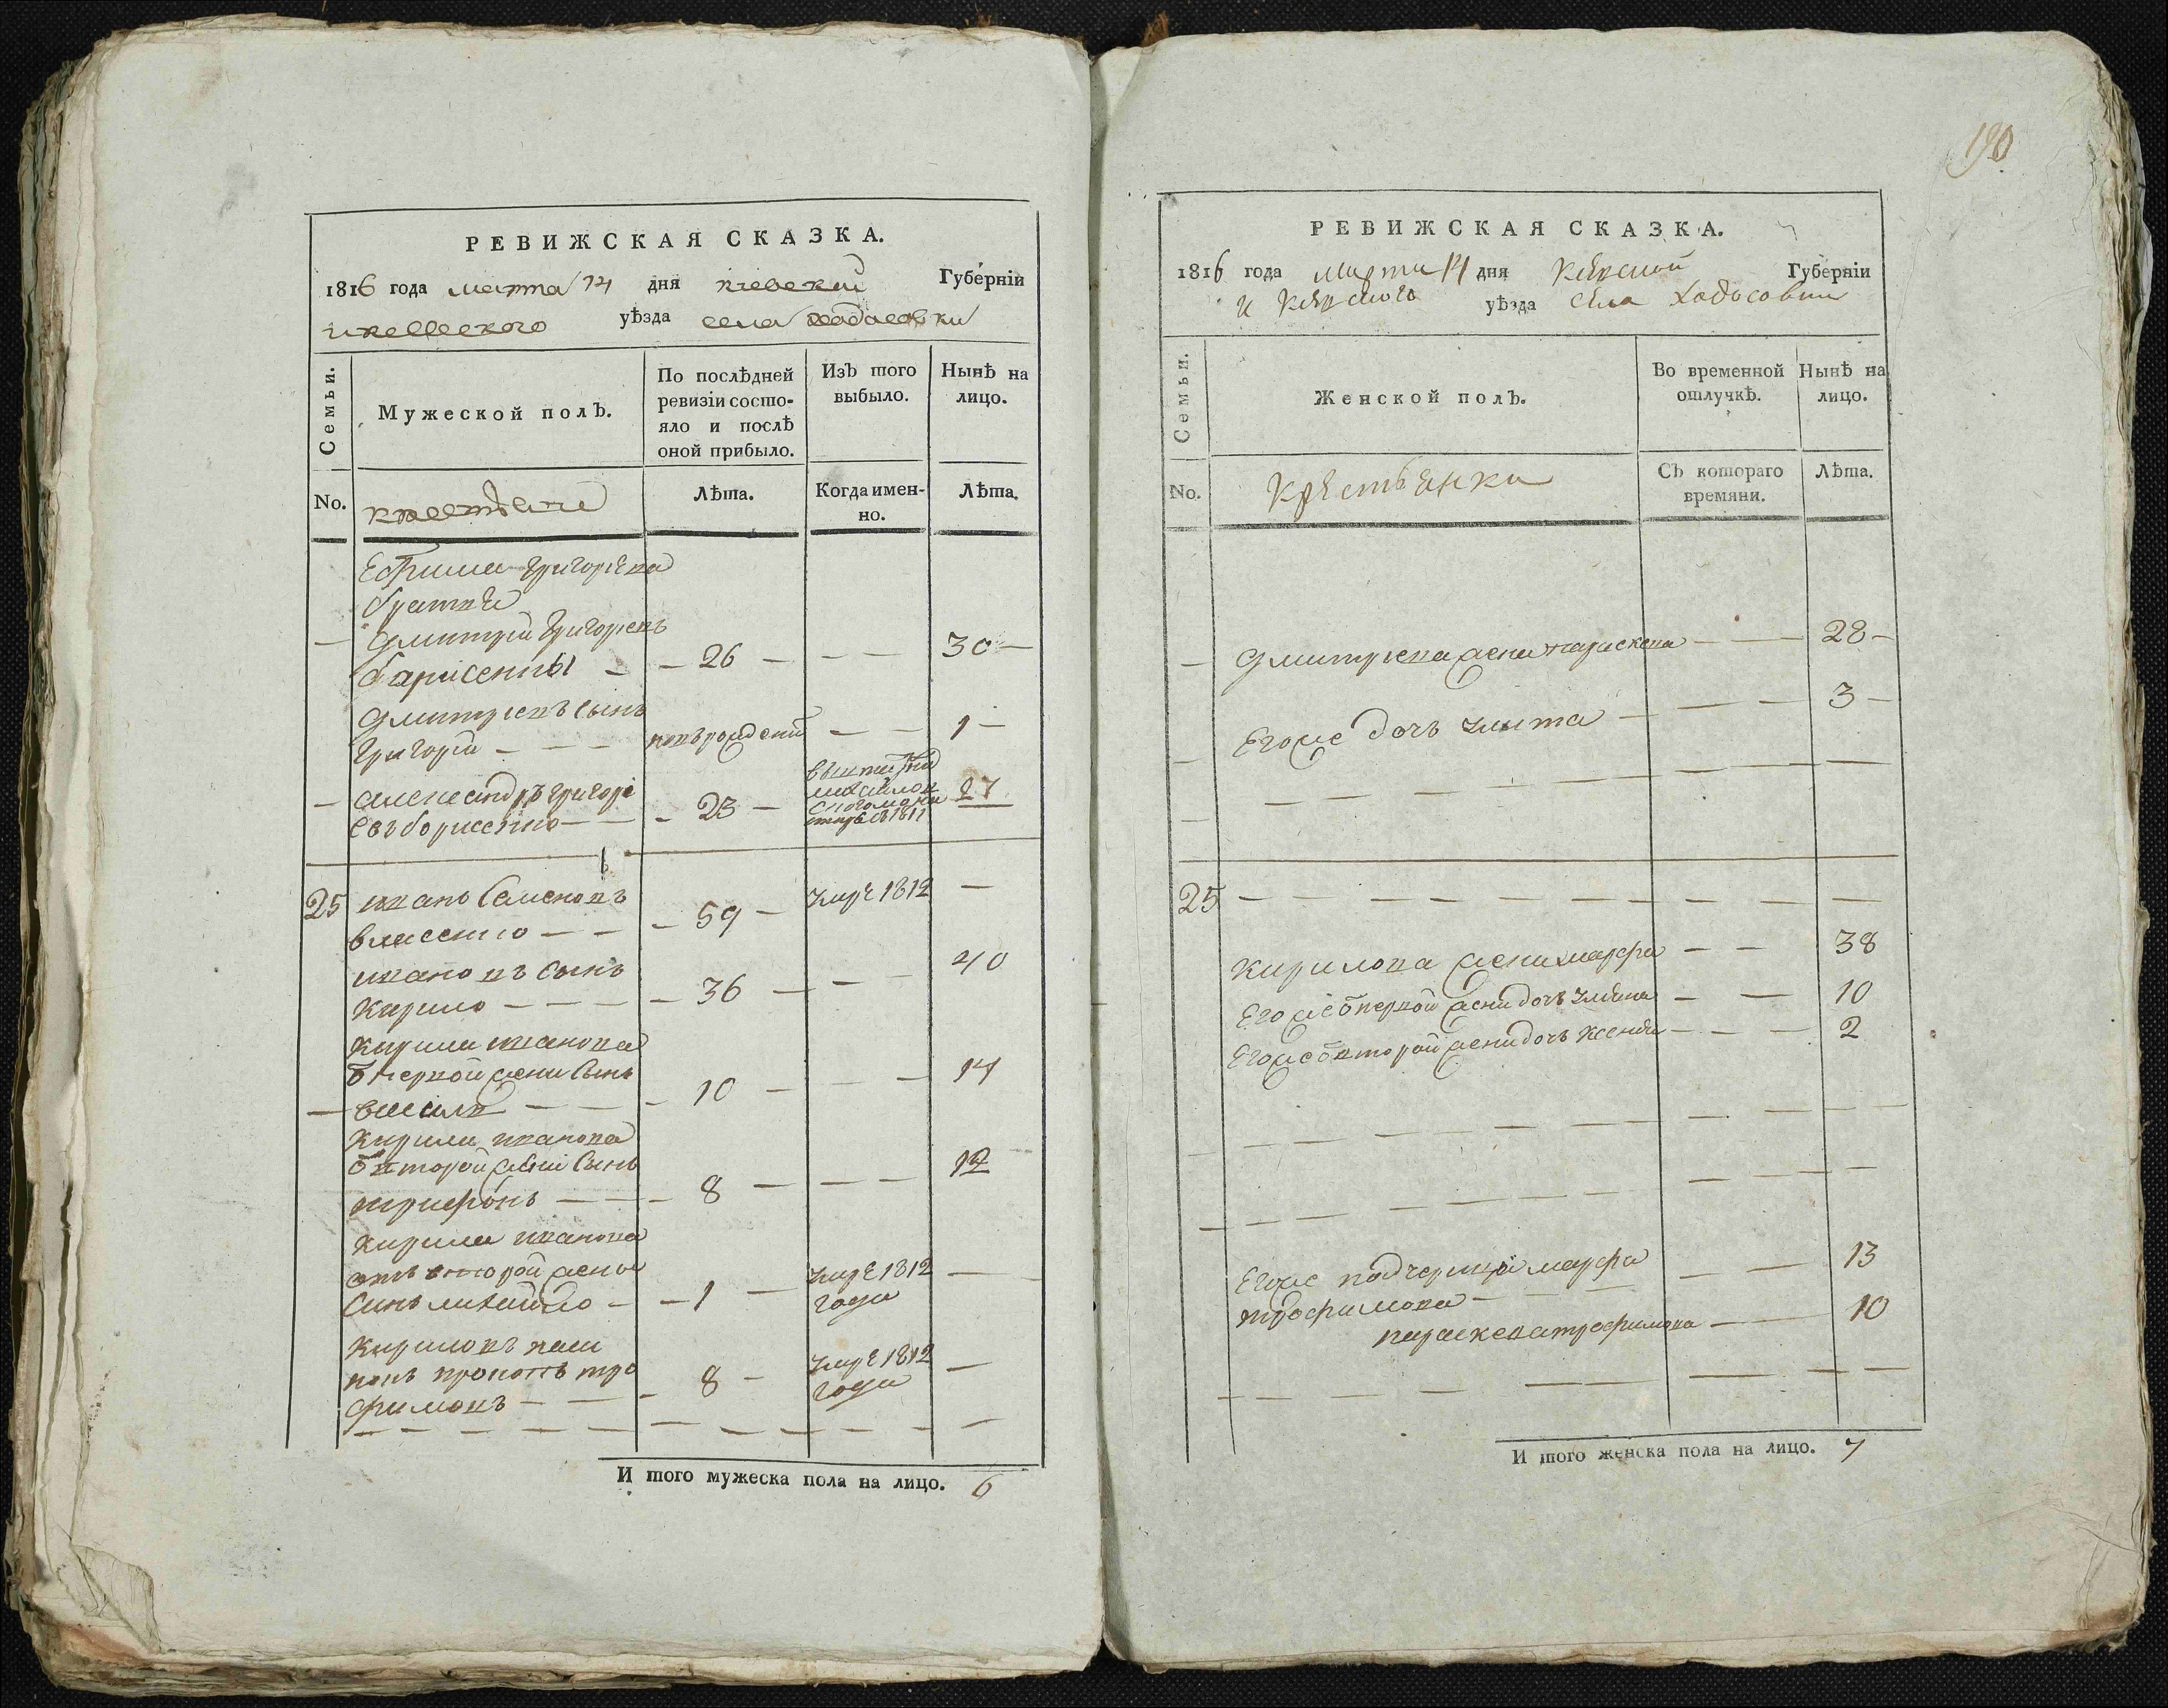 РЕВИЖСКАЯ СКАЗКА.
1816 года марта 14 дня киевской Губерніи
и киевского уѣзда села Ходосовки
Семьи.
Мужеской полЪ.
По послѣдней ревизіи состо-
яло и послѣ
оной прибыло.
ИзЪ того
выбыло.
Нынѣ на
лицо.
No.
крестьяне
Лѣта.
Когда имен-
но.
Лѣта.
Ефима Григорьева
братья
Дмитрій Григорьевъ
барисенко — 26 — — — 30 —
Дмитріевъ сынъ
Григорій — — — новърожденій — — 1 —
Александръ Григорі
евъ борисенко — — 23 — 27
1811
25 Иванъ Семеновъ
власенко — — 59 — умре 1812 —
Ивановъ сынъ
Кирило — — — 36 — — 40
Кирила Иванова
ѿ первой жени сынъ
— василь — — 10 — — — 14
Кирила Иванова
ѿ второй жени сынъ
трифонъ — — 8 — — — 12
Кирила Иванова
отъ второй жены
синъ михайло — 1 — умре 1812 года —
Кириловъ
прокопъ тро
фимовъ — — 8 — умре 1812 года —
И того мужеска пола на лицо. 6
190
РЕВИЖСКАЯ СКАЗКА.
1816 года марта 14 дня Киевской Губерніи
и Киевского уѣзда села Ходосовки
Семьи.
Женской полЪ.
Во временной
отлучкѣ.
Нынѣ на
лицо.
No.
Крестьянки
СЪ котораго
времяни.
Лѣта.
— Дмитриева жена параскева — — 28 —
Егоже дочъ — — — 3 —
25 — — — — — — — — —
Кирилова жена марфа — — 38
Егоже ѿ первой жени дочъ — — 10
Егоже ѿ второй жени дочъ Ксения — — — 2
Егоже падчерица марфа — — 13
трофимова — — —
параскева трофимова — — 10
И того женска пола на лицо. 7